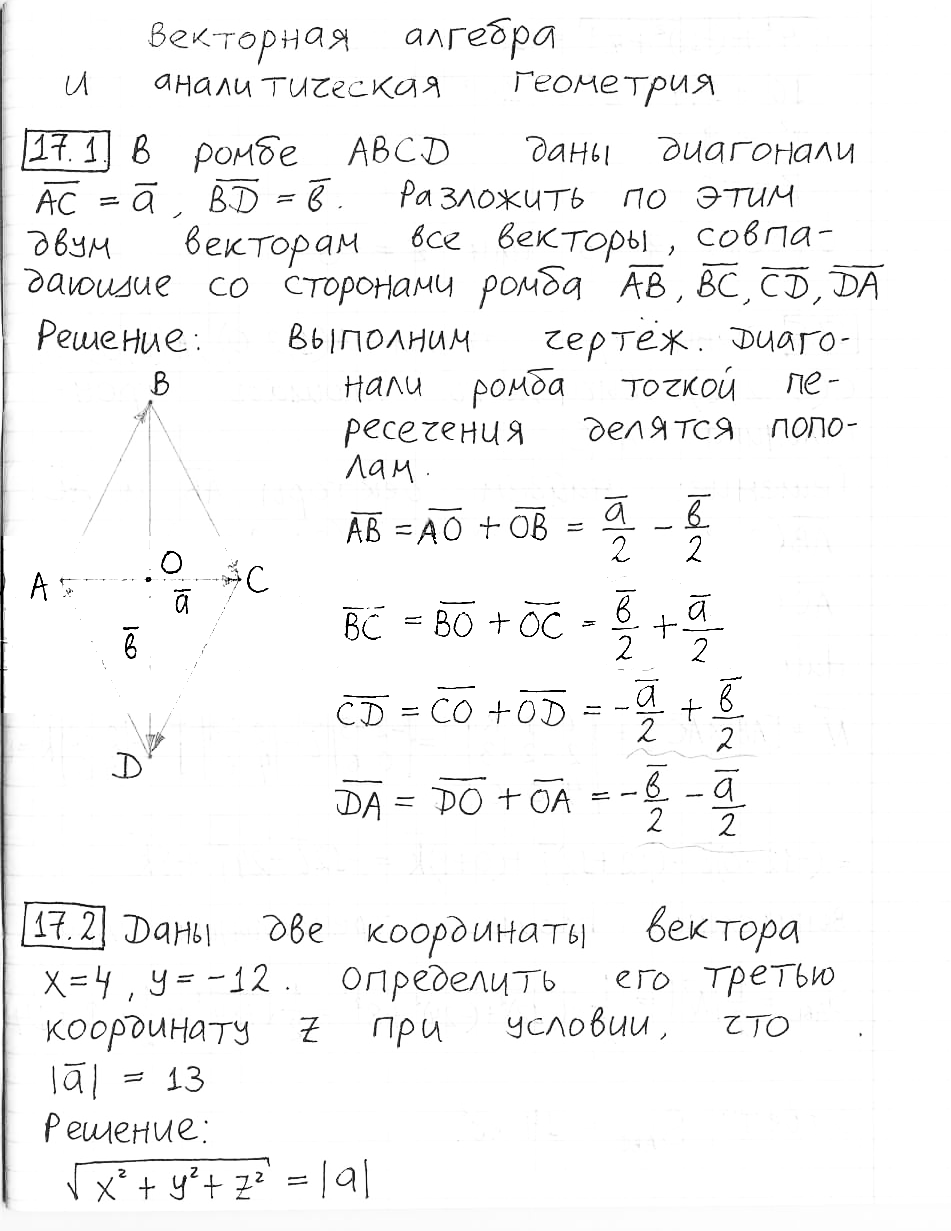 векторная алгебра
и аналитическая геометрия
17.1 В ромбе ABCD даны диагонали
A̅C̅ = a̅, B̅D̅ = в̅. Разложить по этим
двум векторам все векторы, совпа-
дающие со сторонами ромба A̅B̅, B̅C̅, C̅D̅, D̅A̅
Решение: выполним чертёж. Диаго-
нали ромба точкой пе-
ресечения делятся попо-
лам.
B
A
O
a̅
C
в̅
D
A̅B̅ = A̅O̅ + O̅B̅ = a̅/2 − в̅/2
B̅C̅ = B̅O̅ + O̅C̅ = в̅/2 + a̅/2
C̅D̅ = C̅O̅ + O̅D̅ = −a̅/2 + в̅/2
D̅A̅ = D̅O̅ + O̅A̅ = −в̅/2 − a̅/2
17.2 Даны две координаты вектора
x=4, y=−12. Определить его третью
координату z при условии, что
|a̅| = 13
Решение:
√(x² + y² + z²) = |a|